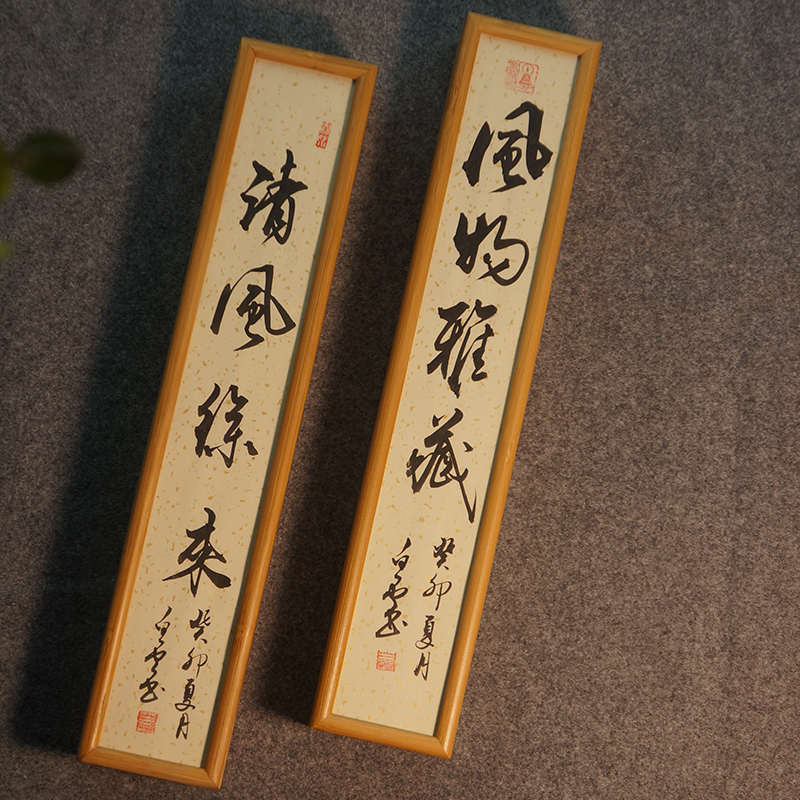 風物雅藏
癸卯夏月
白雲書
清風徐来
癸卯夏月
白雲書